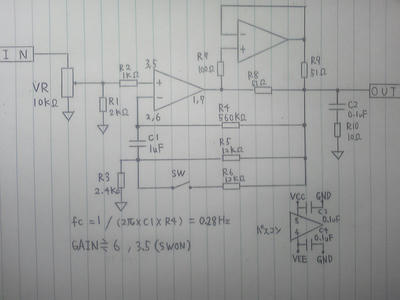 IN
VR
10KΩ
R2
1KΩ
R1
2KΩ
3,5
2,6
1,7
R9
51Ω
R8
51Ω
100Ω
OUT
C2
0.1uF
R10
10Ω
R4
560KΩ
C1
1uF
R5
12KΩ
R3
2.4KΩ
SW
R6
12KΩ
fc = 1 / (2π × C1 × R4) = 0.28Hz
GAIN ≒ 6 , 3.5 (SWON)
パスコン
VCC
GND
C3
0.1uF
8
4
C4
0.1uF
VEE
GND